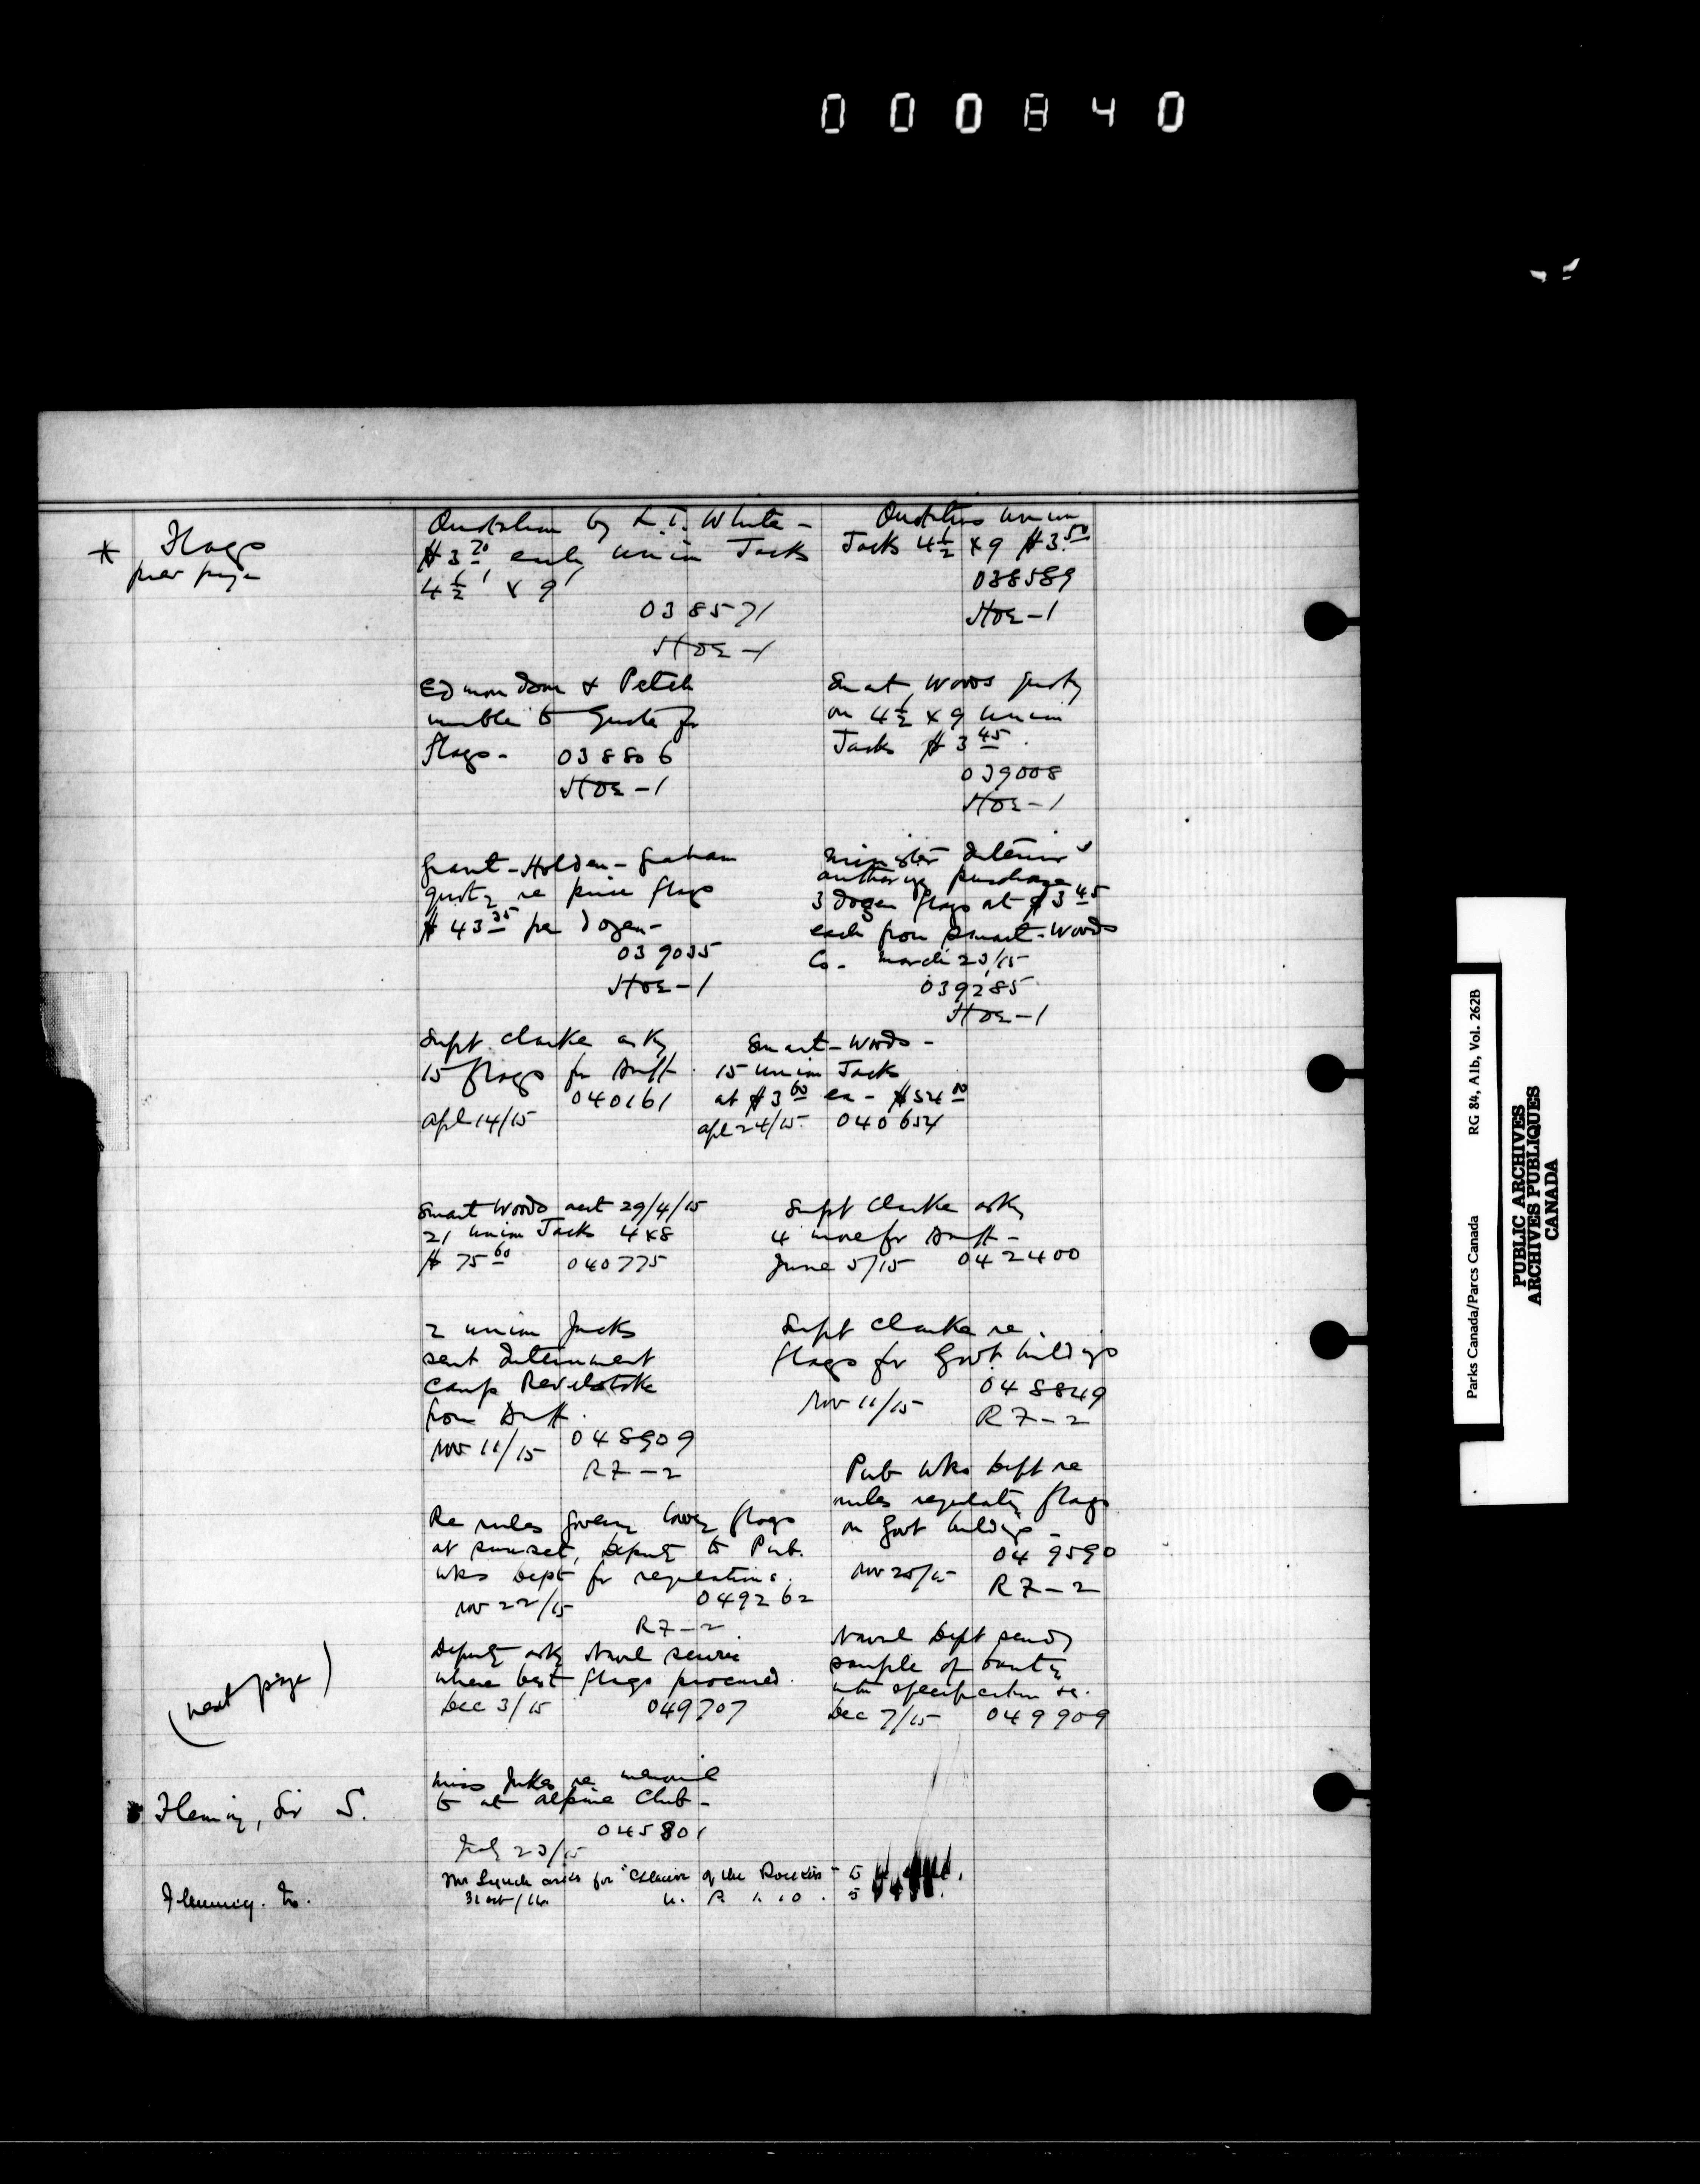 000840
* Flags
prev page
Quotation by L.T. White -
$3 70 each union Jacks
4 1/2' x 9'
038571
HOE-1
Quotations union
Jacks 4 1/2 x 9 $3.50
038589
HOE-1
Edmondson & Petch
unable to quote for
flags - 038806
HOE-1
Smart Woods quotg
on 4 1/2 x 9 union
Jacks $3 45.
039008
HOE-1
Grant-Holden-Graham
quotg re price flags
$43 35 per dozen -
039035
HOE-1
Minister Interior
authorize purchase
3 dozen flags at $3 45
each from Smart-Woods
Co. March 23/15
039285
HOE-1
Supt Clarke askg
15 flags for Banff
040161
Apl 14/15
Smart-Woods -
15 union Jacks
at $3 60 ea - $54 00
Apl 24/15 040654
Smart Woods acct 29/4/15
21 union Jacks 4x8
$75 60 040775
Supt Clarke askg
4 more for Banff -
June 5/15 042400
2 union Jacks
sent Internment
Camp Revelstoke
from Banff.
Nov 11/15 048909
R7-2
Supt Clarke re
flags for Govt buildings
Nov 11/15 048849
R7-2
Re rules governg lowerg flags
at sunset, Deputy to Pub.
Wks Dept for regulations.
Nov 22/15 049262
R7-2
Pub Wks Dept re
rules regulatg flags
on Govt buildings -
Nov 25/15 049590
R7-2
(next page)
Deputy askg Naval Service
where best flags procured.
Dec 3/15 049707
Naval Dept sendg
sample of buntg
with specification re.
Dec 7/15 049909
Fleming, Sir S.
Miss Jukes re memorial
to at Alpine Club -
045801
July 23/15
Flemming.
Mr Lynch asks for of the Rockies" to
31 Oct/16. U.
RG 84, A1b, Vol. 262B
Parks Canada/Parcs Canada
PUBLIC ARCHIVES
ARCHIVES PUBLIQUES
CANADA